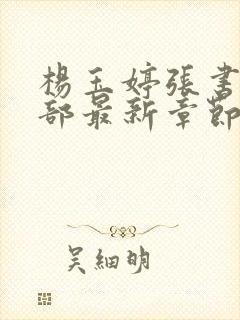 楊玉婷張書
部最新章節
吳細明